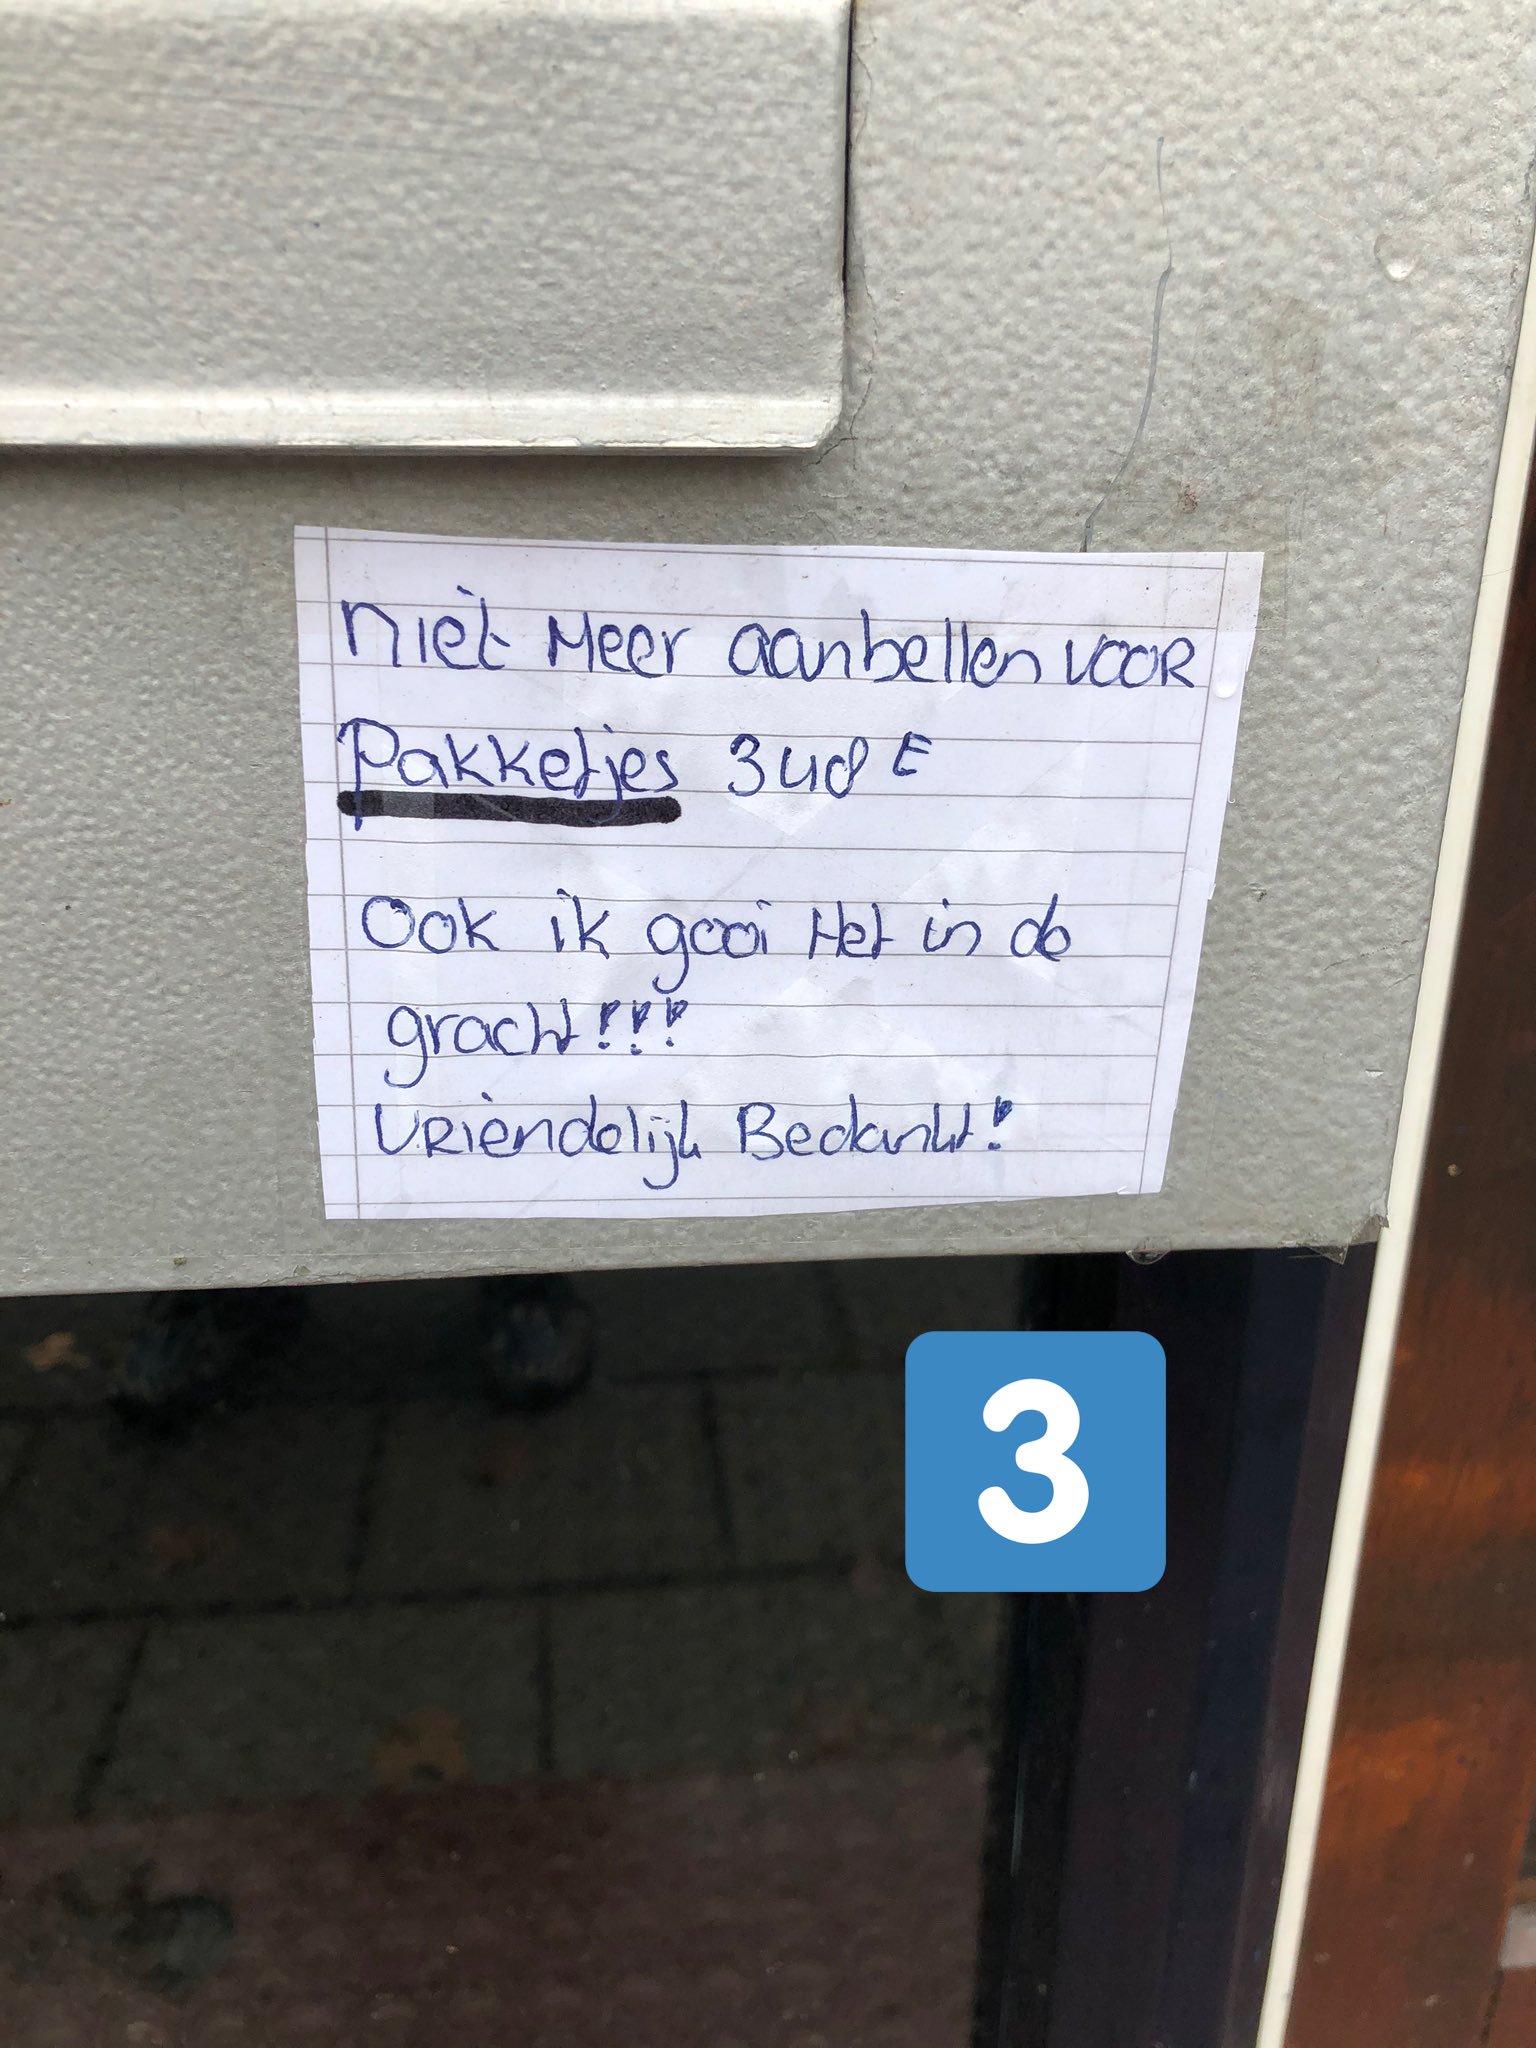 Niet Meer aanbellen VOOR
Pakketjes 348 E
Ook ik gooi Het in de
gracht!!!
Vriendelijk Bedankt!
3